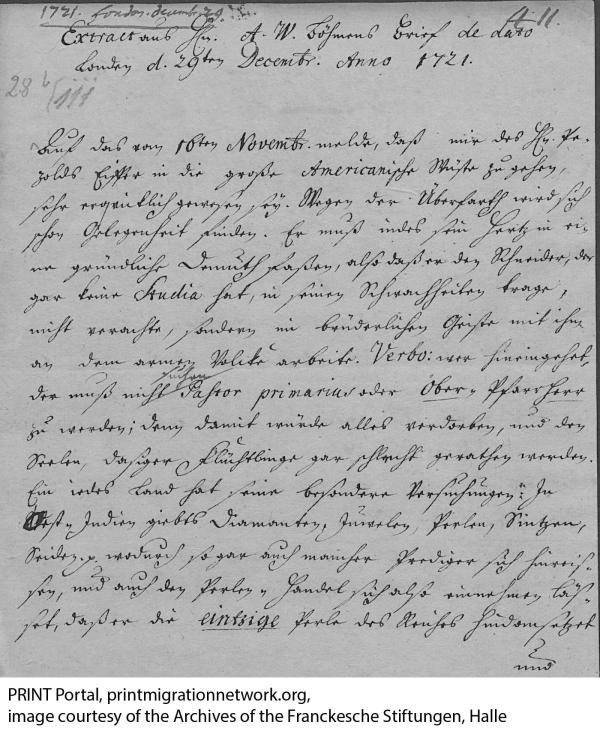 1721. London. decembr. 29.
A. 11.
Extract aus Hn. A. W. Böhmens Brief de dato
London d. 29ten Decembr. Anno 1721.
28
Auf das vom 16ten Novembr. melde, daß mir des Hn. Pe-
zolds Eyffer in die große Americanische Wüste zu gehen,
sehr erquiklich gewesen sey. Wegen der Überfarth wird sich
schon Gelegenheit finden. Er muß indes sein Hertz in ei-
ne gründliche Demuth faßen, also daß er den Schneider, der
gar keine Studia hat, in seinen Schwachheiten trage,
nicht verachte, sondern im brüderlichen Geiste mit ihm
an dem armen Volcke arbeite. Verbo: wer hineingehet,
der muß nicht suchen Pastor primarius oder Ober-Pfarrherr
zu werden; denn damit würde alles verdorben, und den
Seelen, dasiger Flüchtlinge gar schlecht gerathen werden.
Ein iedes Land hat seine besondere Versuchungen: In
Ost-Indien giebts Diamanten, Juwelen, Perlen, Sintzen,
Seiden, wodurch so gar auch mancher Prediger sich hinreis-
sen, und auch den Perlen-Handel sich also einnehmen läs-
set, daß er die eintzige Perle des Reiches hindansetzet
und
PRINT Portal, printmigrationnetwork.org,
image courtesy of the Archives of the Franckesche Stiftungen, Halle